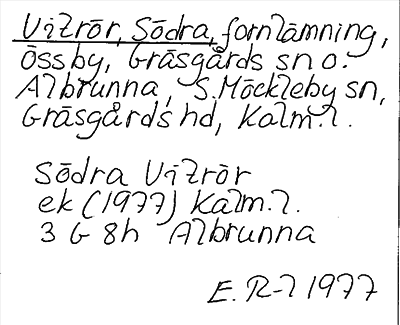 Vizrör, Södra, fornlämning,
Össby, Gräsgårds sn o.
Albrunna, S. Möckleby sn,
Gräsgårds hd, Kalm. l.
Södra Vizrör
ek (1977) Kalm. l.
3 G 8h Albrunna
E. R-l 1977